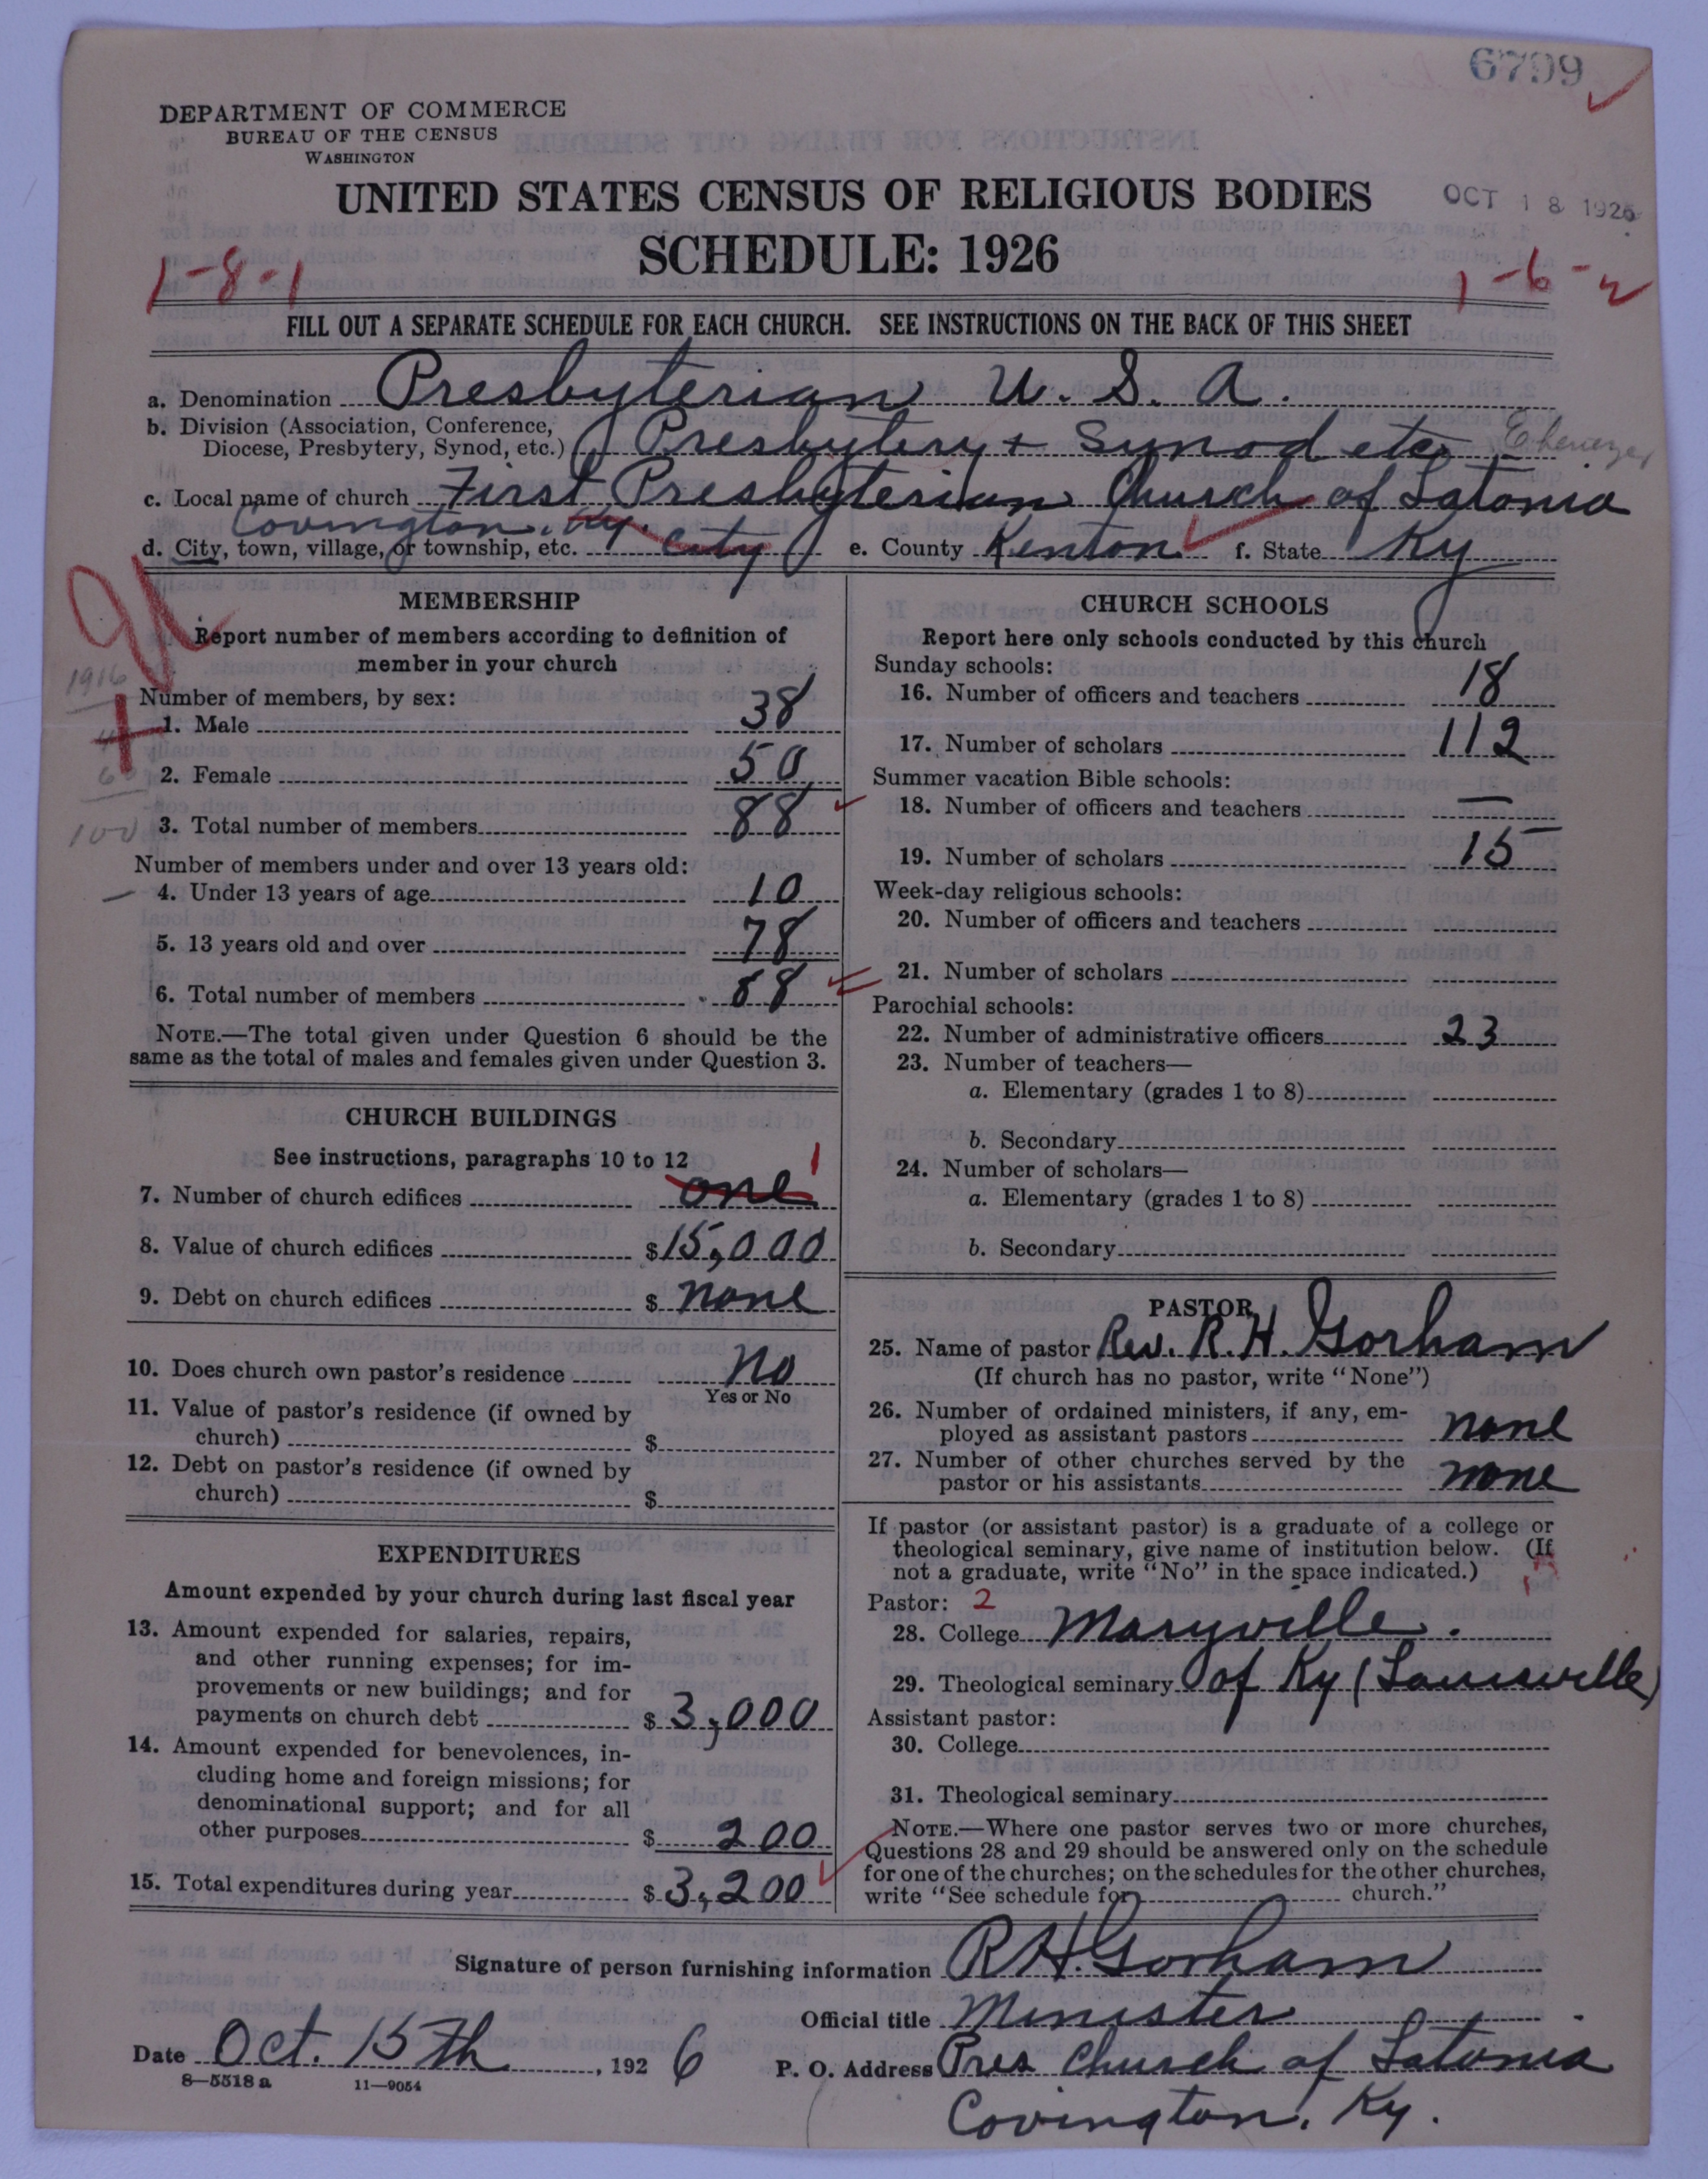 6799
DEPARTMENT OF COMMERCE
BUREAU OF THE CENSUS
WASHINGTON
UNITED STATES CENSUS OF RELIGIOUS BODIES
OCT 18 1926
SCHEDULE: 1926
1-8-1
1-6-2
FILL OUT A SEPARATE SCHEDULE FOR EACH CHURCH. SEE INSTRUCTIONS ON THE BACK OF THIS SHEET
a. Denomination Presbyterian U. S. A.
b. Division (Association, Conference,
Diocese, Presbytery, Synod, etc.) Presbytery + Synod etc Ebenezer
c. Local name of church First Presbyterian Church of Latonia
Covington. Ky.
d. City, town, village, or township, etc. City e. County Kenton f. State Ky
MEMBERSHIP
Report number of members according to definition of
member in your church
1916
Number of members, by sex:
1. Male 38
2. Female 50
3. Total number of members 88
100
Number of members under and over 13 years old:
4. Under 13 years of age 10
5. 13 years old and over 78
6. Total number of members 88
NOTE.—The total given under Question 6 should be the
same as the total of males and females given under Question 3.
CHURCH BUILDINGS
See instructions, paragraphs 10 to 12
7. Number of church edifices one 1
8. Value of church edifices $15,000
9. Debt on church edifices $ none
10. Does church own pastor's residence No
Yes or No
11. Value of pastor's residence (if owned by
church) $
12. Debt on pastor's residence (if owned by
church) $
EXPENDITURES
Amount expended by your church during last fiscal year
13. Amount expended for salaries, repairs,
and other running expenses; for im-
provements or new buildings; and for
payments on church debt $ 3,000
14. Amount expended for benevolences, in-
cluding home and foreign missions; for
denominational support; and for all
other purposes $ 200
15. Total expenditures during year $ 3,200
CHURCH SCHOOLS
Report here only schools conducted by this church
Sunday schools:
16. Number of officers and teachers 18
17. Number of scholars 112
Summer vacation Bible schools:
18. Number of officers and teachers —
19. Number of scholars 15
Week-day religious schools:
20. Number of officers and teachers
21. Number of scholars
Parochial schools:
22. Number of administrative officers 23
23. Number of teachers—
a. Elementary (grades 1 to 8)
b. Secondary
24. Number of scholars—
a. Elementary (grades 1 to 8)
b. Secondary
PASTOR
25. Name of pastor Rev. R. H. Gorham
(If church has no pastor, write "None")
26. Number of ordained ministers, if any, em-
ployed as assistant pastors none
27. Number of other churches served by the
pastor or his assistants none
If pastor (or assistant pastor) is a graduate of a college or
theological seminary, give name of institution below. (If
not a graduate, write "No" in the space indicated.)
Pastor: 2
28. College Maryville.
29. Theological seminary of Ky (Louisville)
Assistant pastor:
30. College
31. Theological seminary
NOTE.—Where one pastor serves two or more churches,
Questions 28 and 29 should be answered only on the schedule
for one of the churches; on the schedules for the other churches,
write "See schedule for church."
Signature of person furnishing information R H. Gorham
Official title Minister
Date Oct. 15th, 1926 P. O. Address Pres Church of Latonia
8—5518a 11—9054
Covington, Ky.